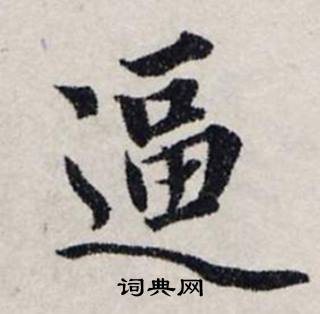 逼
词典网